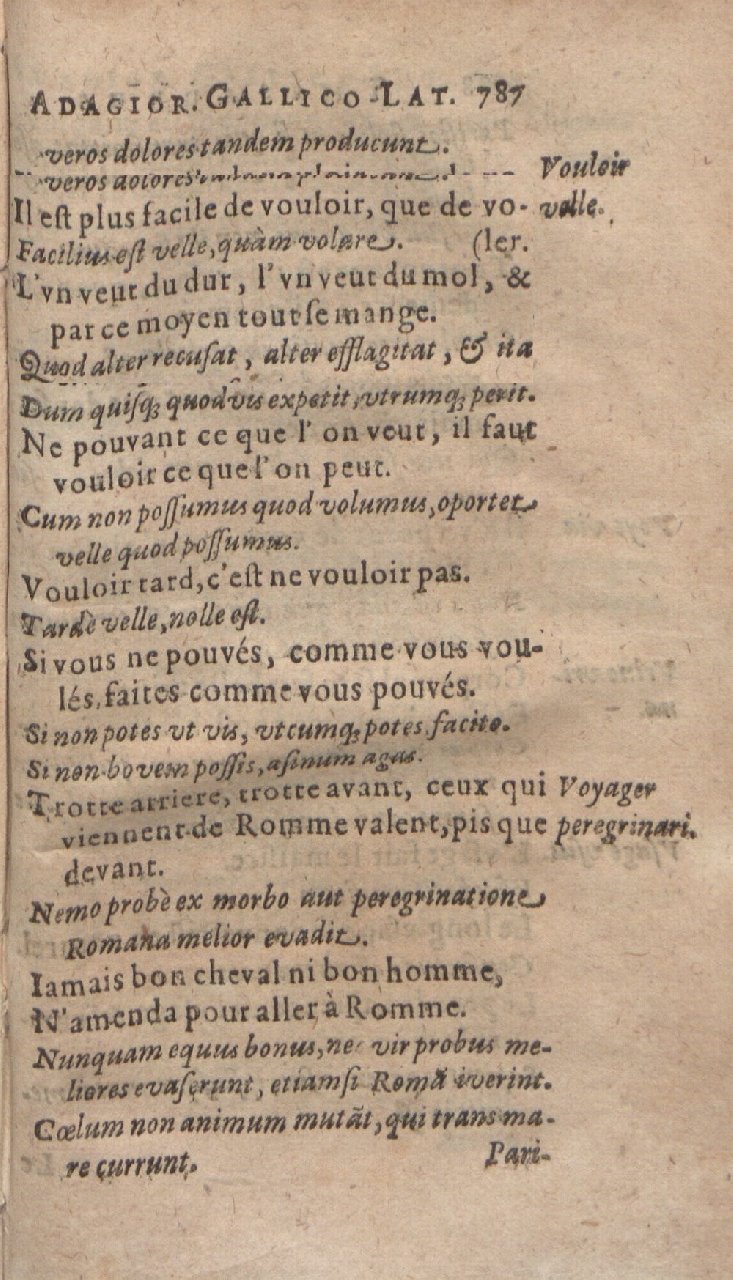 ADAGIOR. GALLICO-LAT. 787
veros dolores tandem producunt.
veros
Vouloir
Il est plus facile de vouloir, que de vo-
velle.
Facilius est velle, quàm volare. (ler.
L'vn veut du dur, l'vn veut du mol, &
par ce moyen tout se mange.
Quod alter recusat, alter efflagitat, & ita
Dum quisq; quod vis expetit, vtrumq; perit.
Ne pouvant ce que l'on veut, il faut
vouloir ce que l'on peut.
Cum non possumus quod volumus, oportet
velle quod possumus.
Vouloir tard, c'est ne vouloir pas.
Tardè velle, nolle est.
Si vous ne pouvés, comme vous vou-
lés, faites comme vous pouvés.
Si non potes vt vis, vtcumq; potes facito.
Si non bovem possis, asinum agas.
Trotte arriere, trotte avant, ceux qui
Voyager
viennent de Romme valent, pis que
peregrinari.
devant.
Nemo probè ex morbo aut peregrinatione
Romana melior evadit.
Iamais bon cheval ni bon homme,
N'amenda pour aller à Romme.
Nunquam equus bonus, ne vir probus me-
liores evaserunt, etiamsi Romã iverint.
Cœlum non animum mutãt, qui trans ma-
re currunt.
Pari-